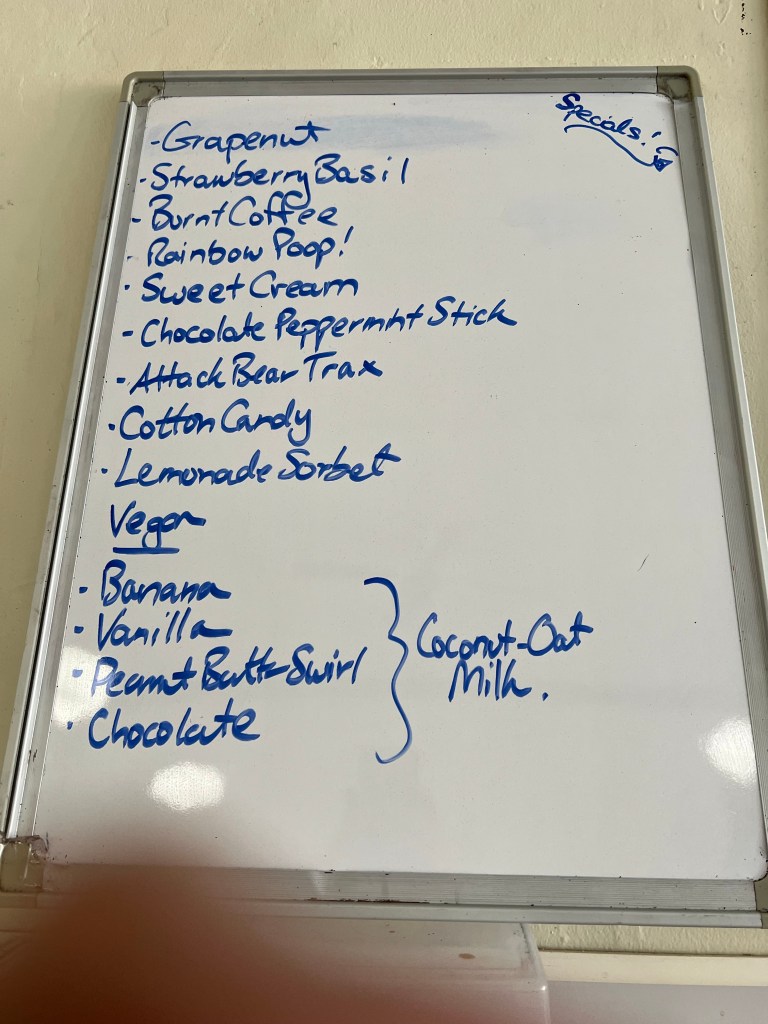 Specials!
- Grapenut
- Strawberry Basil
- Burnt Coffee
- Rainbow Poop!
- Sweet Cream
- Chocolate Peppermint Stick
- Attack Bear Trax
- Cotton Candy
- Lemonade Sorbet
Vegan
- Banana
- Vanilla
- Peanut Butter Swirl
- Chocolate
Coconut-Oat
Milk.